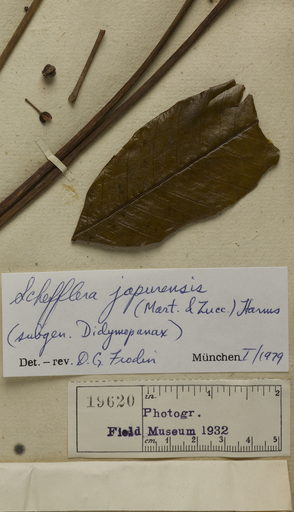 Schefflera japurensis
(Mart. & Zucc.) Harms
(subgen. Didymopanax)
Det. – rev. D. G. Frodin München I/1979
19620
in. 1 2
Photogr.
Field Museum 1932
cm. 1 2 3 4 5